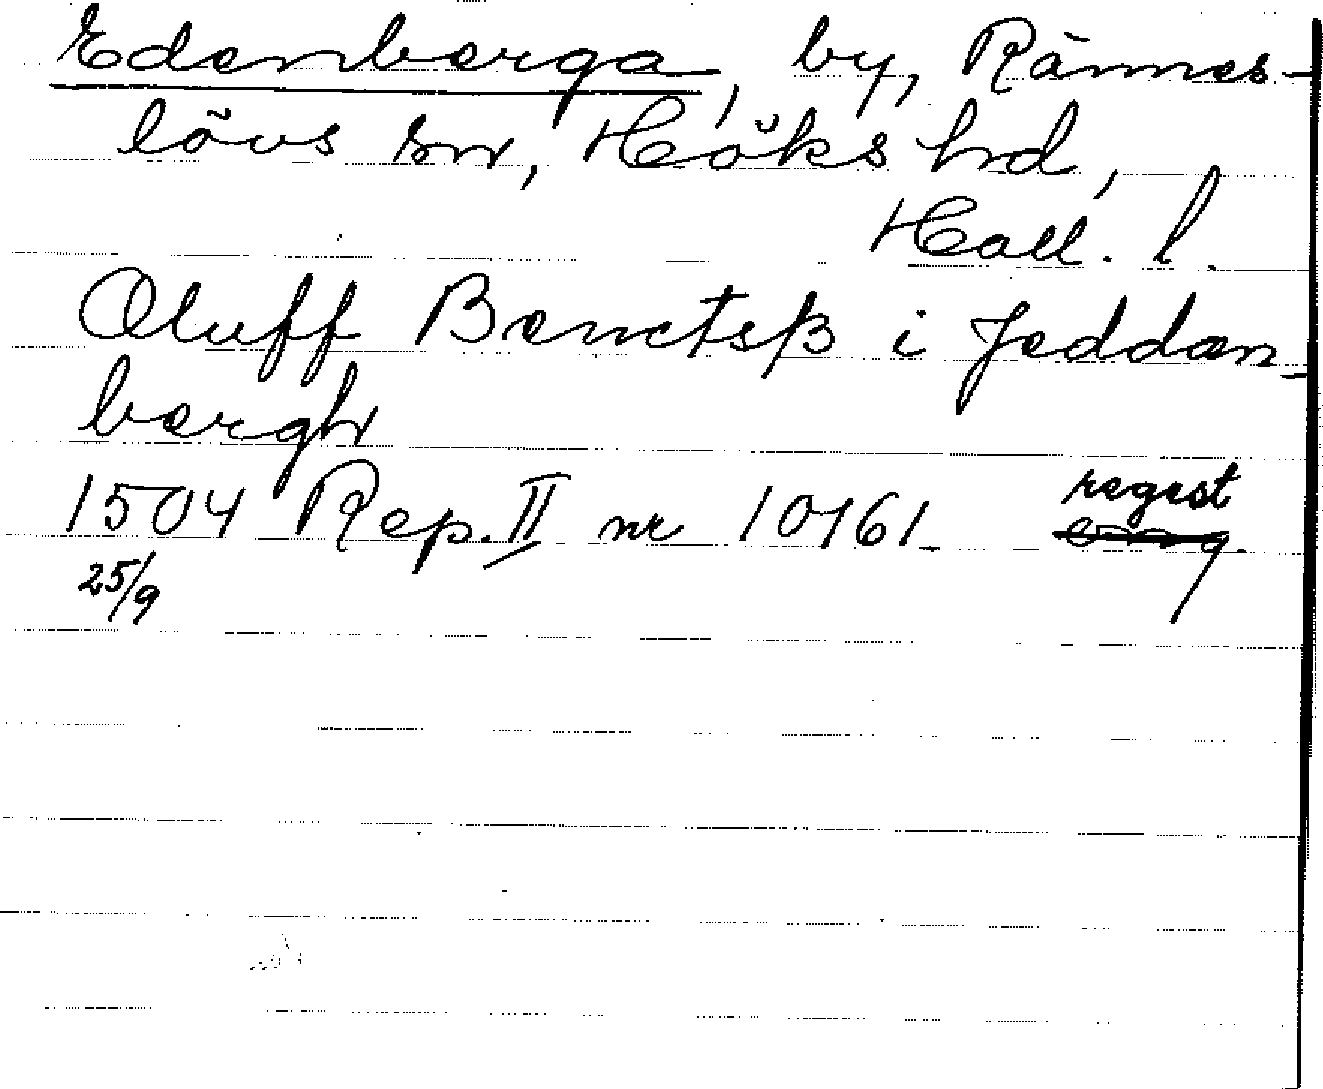 Edenberga, by, Rännes-
lövs sn, Höks hd,
Hall. l.
Oluff Benctsß i Jedden-
bergh
1504 Rep. II nr 10161 regest
25/9